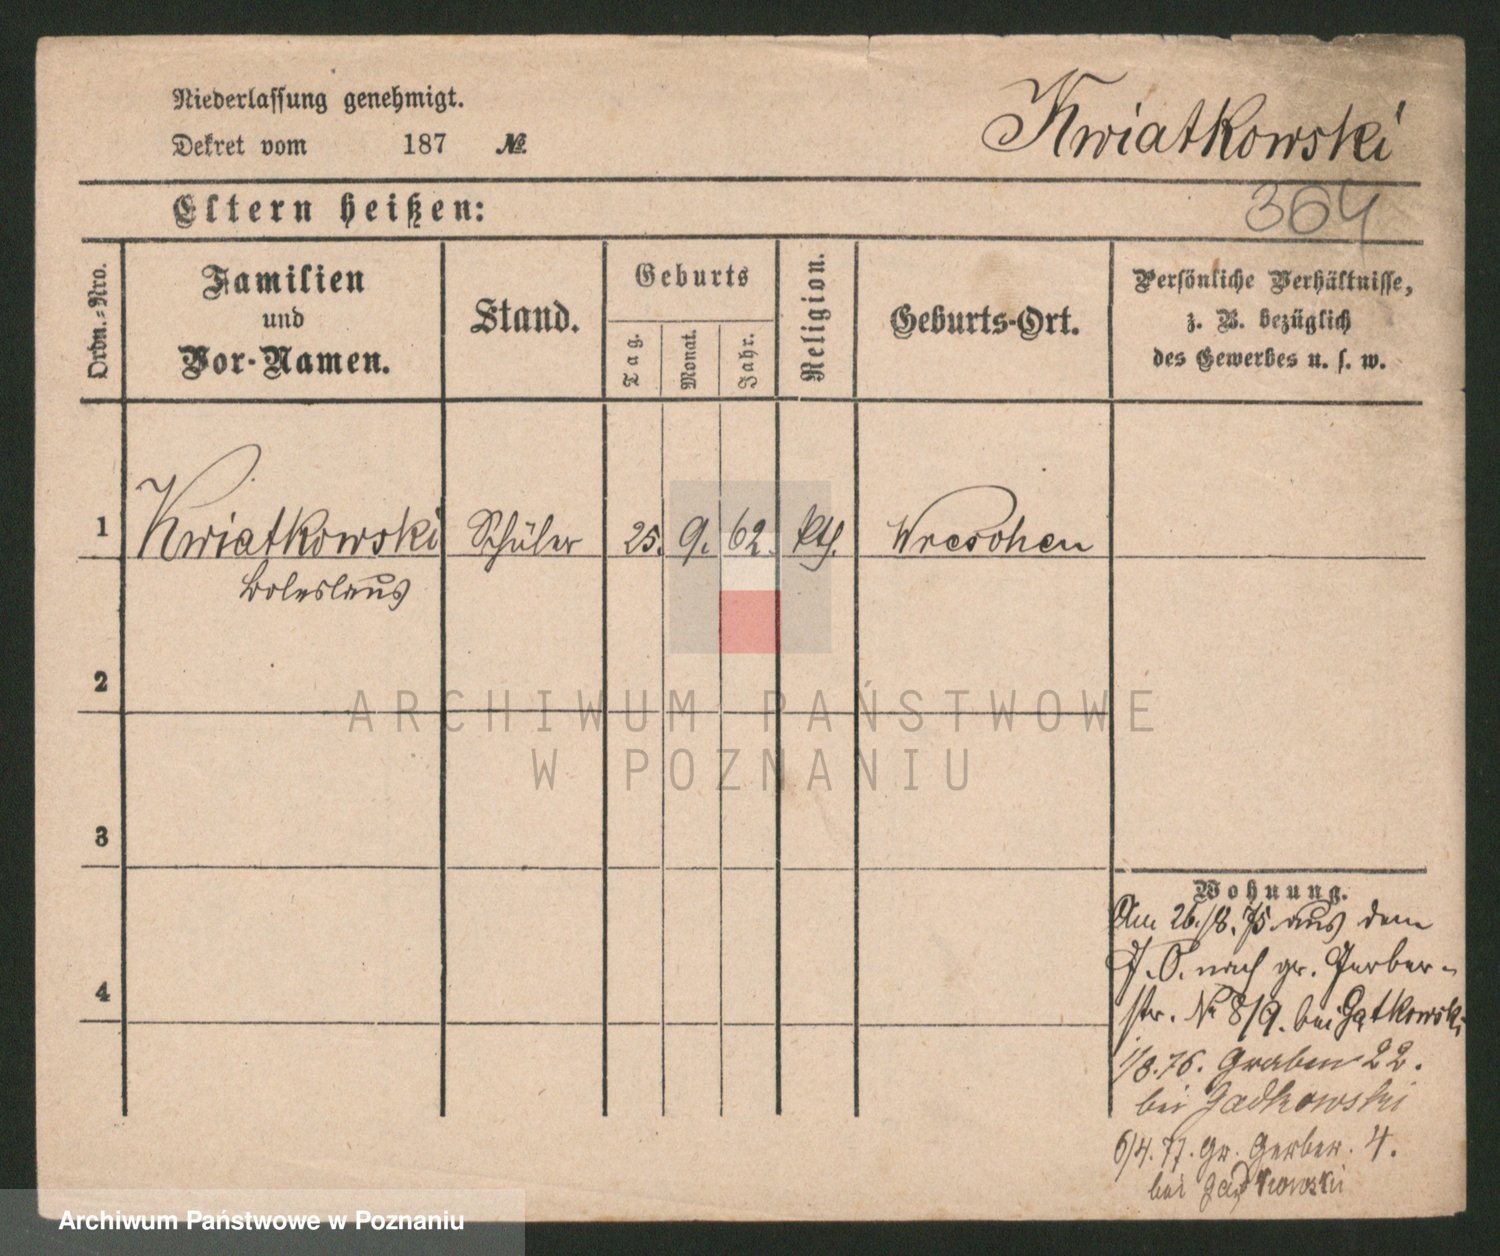 Niederlassung genehmigt.
Dekret vom 187 №
Kwiatkowski
364
Eltern heißen:
Ordn.-Nro.
Familien
und
Vor-Namen.
Stand.
Geburts
Tag.
Monat.
Jahr.
Religion.
Geburts-Ort.
Persönliche Verhältnisse,
z. B. bezüglich
des Gewerbes u. s. w.
1 Kwiatkowski Schüler 25. 9. 62. kth. Wreschen
Boleslaus
2
3
4
Wohnung.
Am 26./8. 75 aus dem
P. O. nach gr. Gerber-
str. № 8/9. bei Gątkowski
1/8.76. Graben 22.
bei Gadkowski
6/4.77. Gr. Gerber. 4.
bei
ARCHIWUM PAŃSTWOWE
W POZNANIU
Archiwum Państwowe w Poznaniu